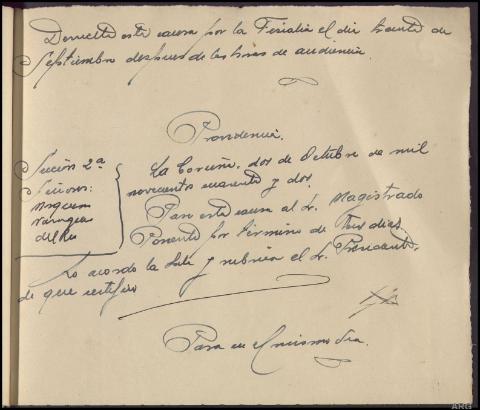 Devuelta esta causa por la Fiscalia el dia treinta de
Septiembre despues de las horas de audiencia.
Providencia.
Sección 2ª
Señores:
del Rio
La Coruña, dos de Octubre de mil
novecientos cuarenta y dos.
Pase esta causa al Sr. Magistrado
Ponente por término de tres dias.
Lo acordó la Sala y rubrica el Sr. Presidente,
de que certifico
Pasa en el mismo dia.
ARG